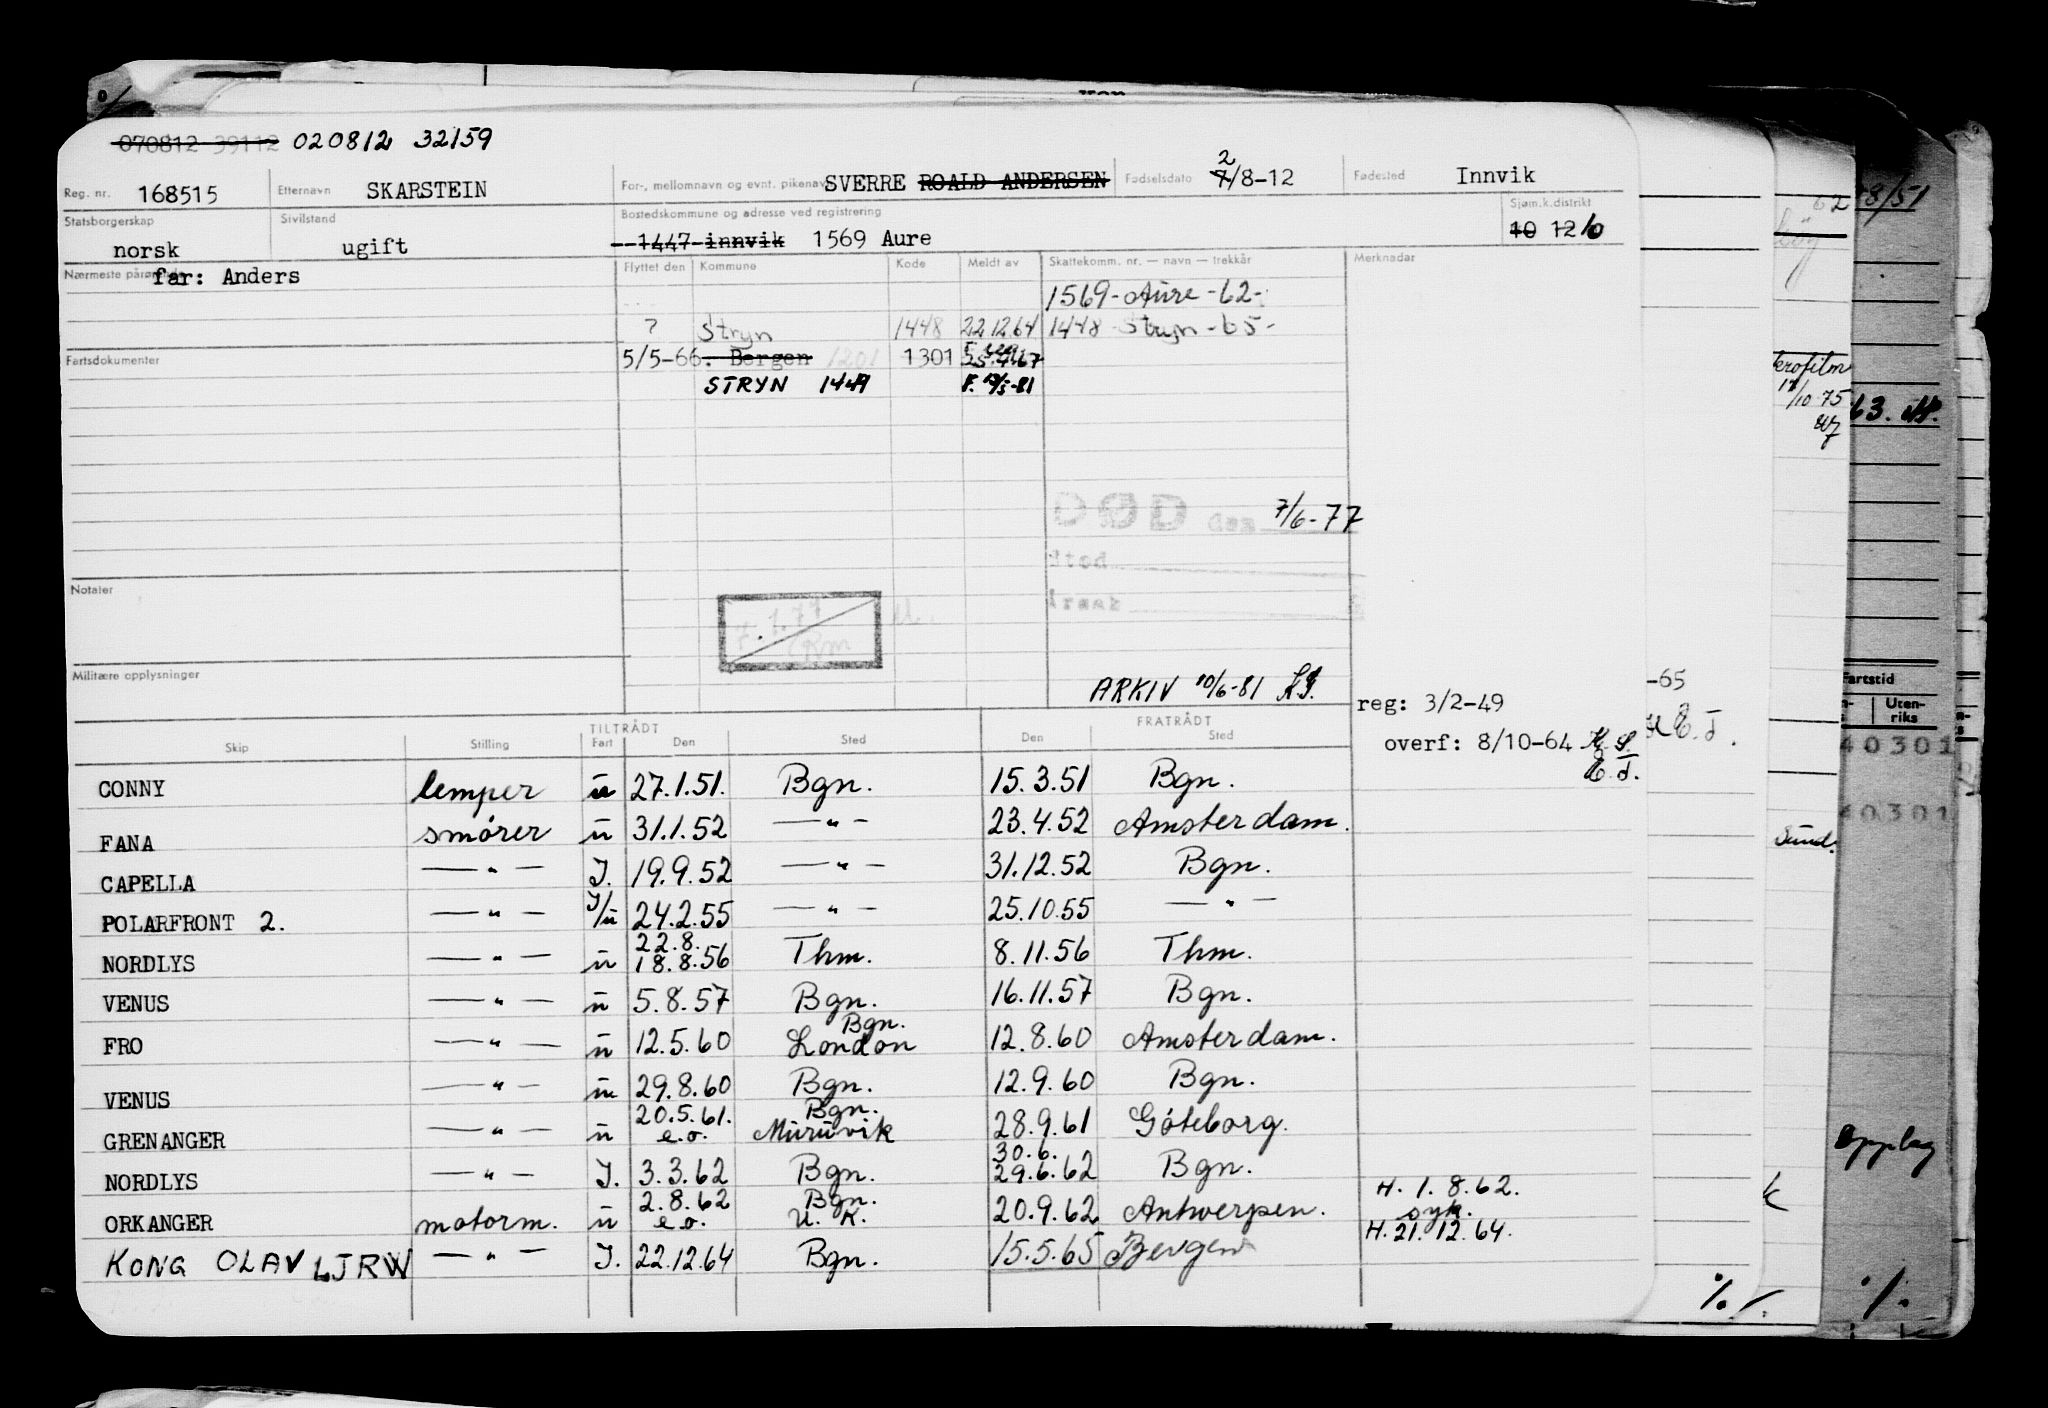 070812 39112 020812 32159
Reg. nr. 168515 Etternavn SKARSTEIN For-, mellomnavn og evnt. pikenavn SVERRE ROALD ANDERSEN Fødselsdato 7/8-12 2 Fødested Innvik
Statsborgerskap norsk Sivilstand ugift Bostedskommune og adresse ved registrering 1447 innvik 1569 Aure Sjøm.k.distrikt 10 12 10
Nærmeste pårørende far: Anders Flyttet den Kommune Kode Meldt av Skattekomm. nr. — navn — trekkår Merknader
1569 - Aure - 62 -
? Stryn 1448 22 12 64 1448 Stryn - 65 -
Fartsdokumenter 5/5-66. Bergen 1201 1301
STRYN 1449
DØD den 7/6-77
Sted
Notater
Militære opplysninger
ARKIV 10/6-81
reg: 3/2-49
overf: 8/10-64
TILTRÅDT FRATRÅDT
Skip Stilling Fart Den Sted Den Sted
CONNY lemper u 27.1.51. Bgn. 15.3.51 Bgn.
FANA smører u 31.1.52 —"— 23.4.52 Amsterdam.
CAPELLA —"— I. 19.9.52 —"— 31.12.52 Bgn.
POLARFRONT 2. —"— I/u 24.2.55 —"— 25.10.55 —"—
22.8.
NORDLYS —"— u 18.8.56 Thm. 8.11.56 Thm.
VENUS —"— u 5.8.57 Bgn. 16.11.57 Bgn.
Bgn.
FRO —"— u 12.5.60 London 12.8.60 Amsterdam.
VENUS —"— u 29.8.60 Bgn. 12.9.60 Bgn.
20.5.61. Bgn.
GRENANGER —"— u e.o. Muruvik 28.9.61 Göteborg.
30.6.
NORDLYS —"— I. 3.3.62 Bgn. 29.6.62 Bgn.
2.8.62 Bgn. H. 1.8.62.
ORKANGER motorm. u e.o. U.K. 20.9.62 Antwerpen. syk.
H. 21.12.64.
KONG OLAV LJRW —"— I. 22.12.64 Bgn. 15.5.65 Bergen
8/51
17/10 75
63.
-65
Fartstid
Uten-
riks
40301
40301
Sund.
Opplag